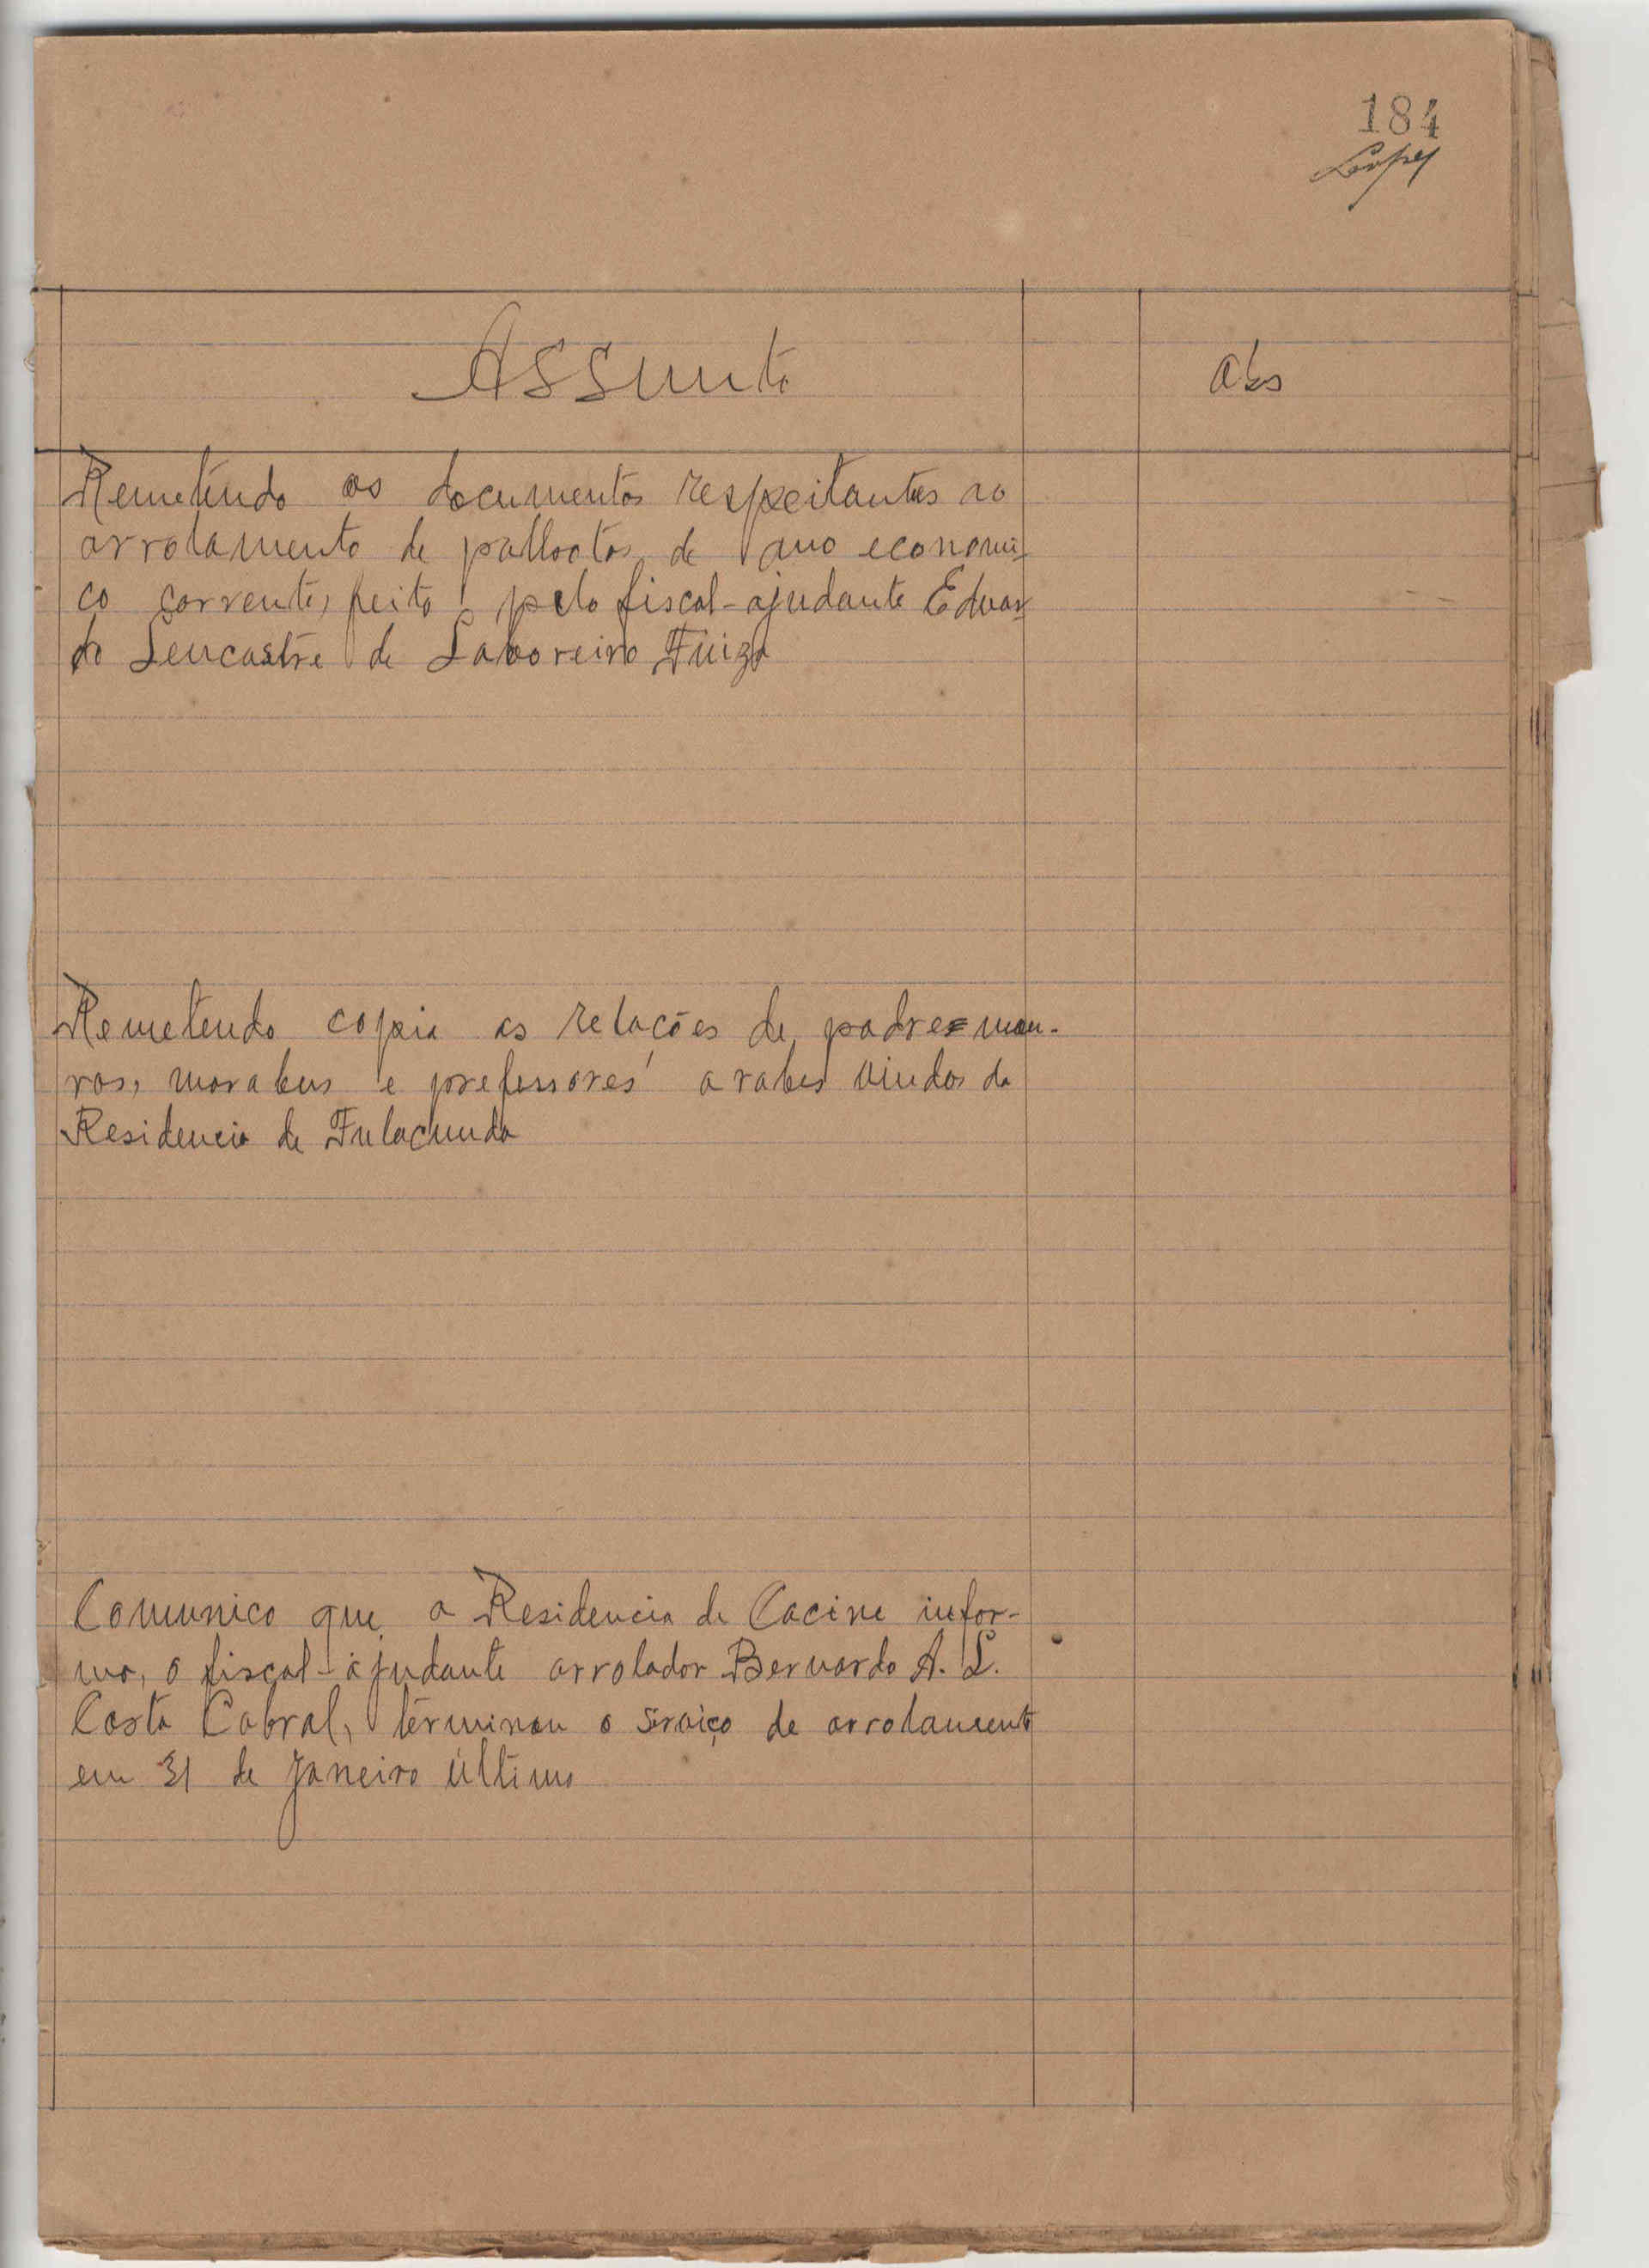 184
Lopes
Assunto
Obs
Remetendo os documentos respeitantes ao
arrolamento de palhotas, do ano economi-
co corrente, feito pelo fiscal-ajudante Eduar-
do Lencastre de Laboreiro Fiuza
Remetendo copia as relações de padres mou-
ros, morabus e professores arabes vindos da
Residencia de Fulacunda
Comunico que a Residencia de Cacine infor-
ma, o fiscal-ajudante arrolador Bernardo A. L.
Costa Cabral, terminou o serviço de arrolamento
em 31 de Janeiro último